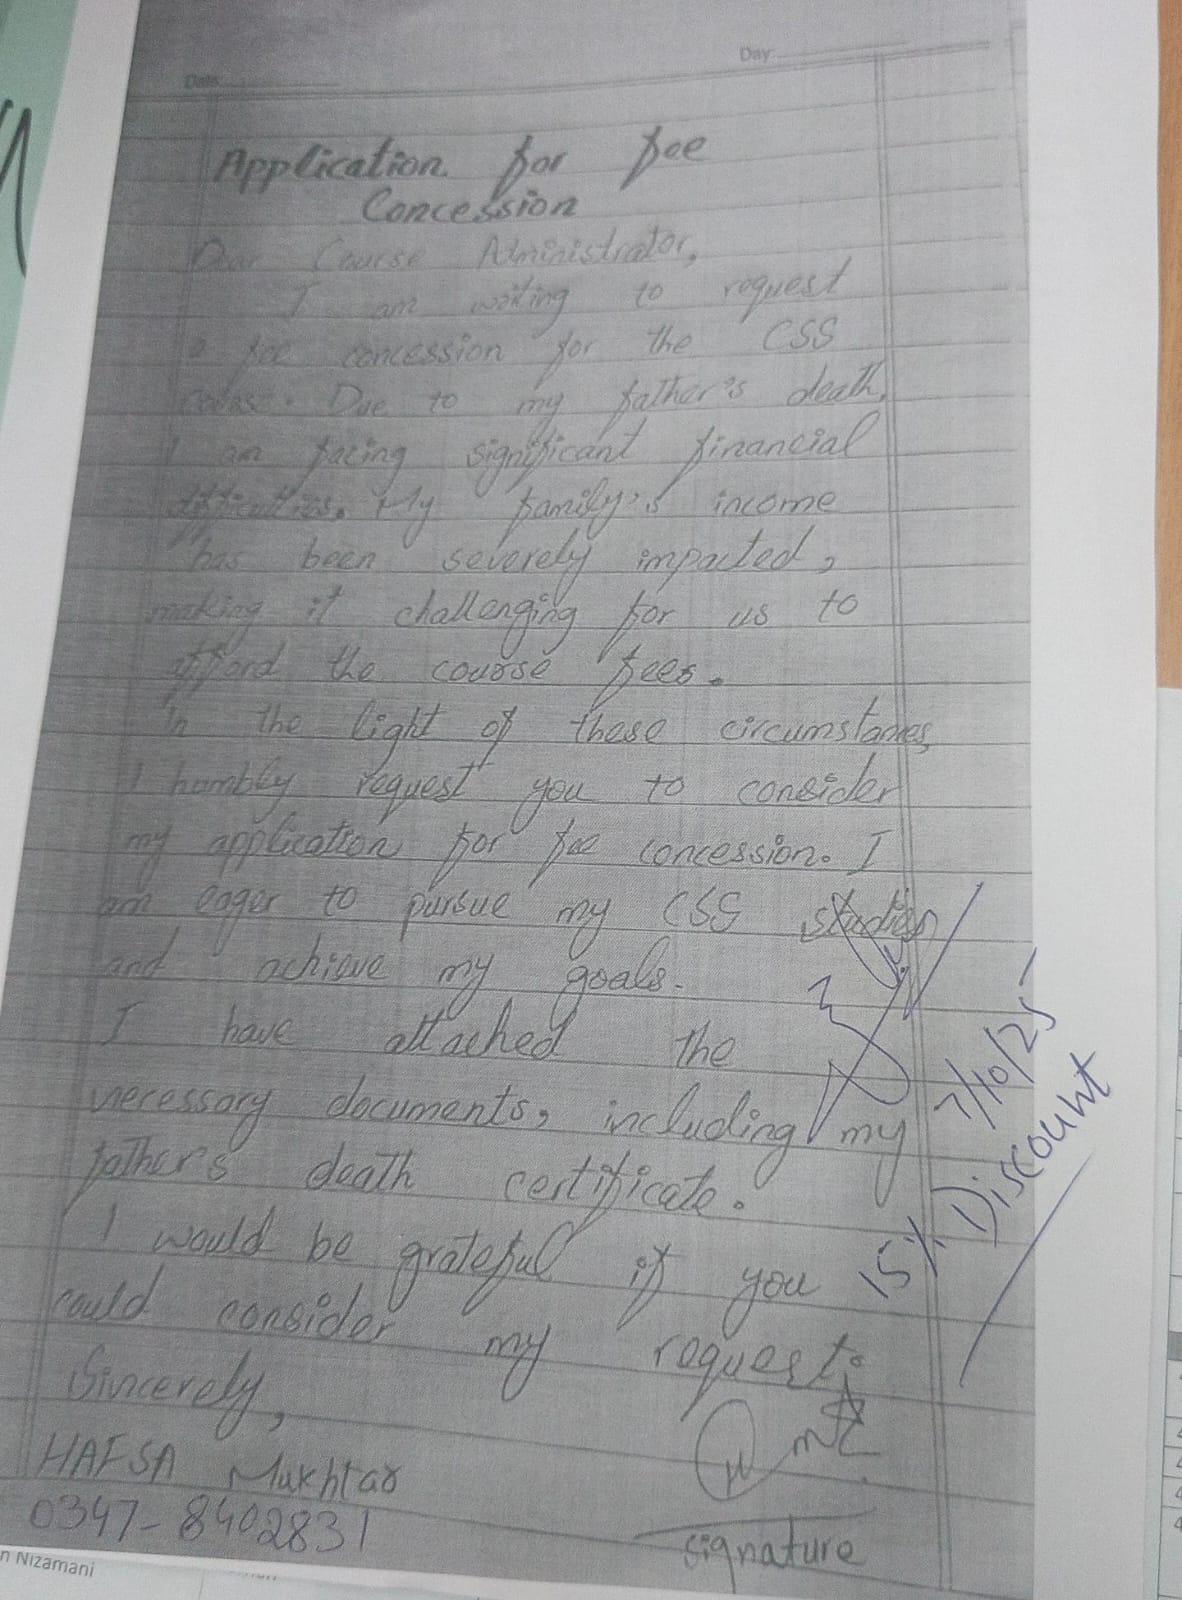 Date
Day
Application for fee
Concession
Dear Course Administrator,
I am writing to request
a fee concession for the CSS
course. Due to my father's death,
I am facing significant financial
difficulties. My family's income
has been severely impacted,
making it challenging for us to
afford the course fees.
In the light of these circumstances,
I humbly request you to consider
my application for fee concession. I
am eager to pursue my CSS studies
and achieve my goals.
I have attached the
necessary documents, including my
father's death certificate.
I would be grateful if you
could consider my request.
Sincerely,
HAFSA Mukhtar
0347-8402831
signature
7/10/25
15% Discount
n Nizamani